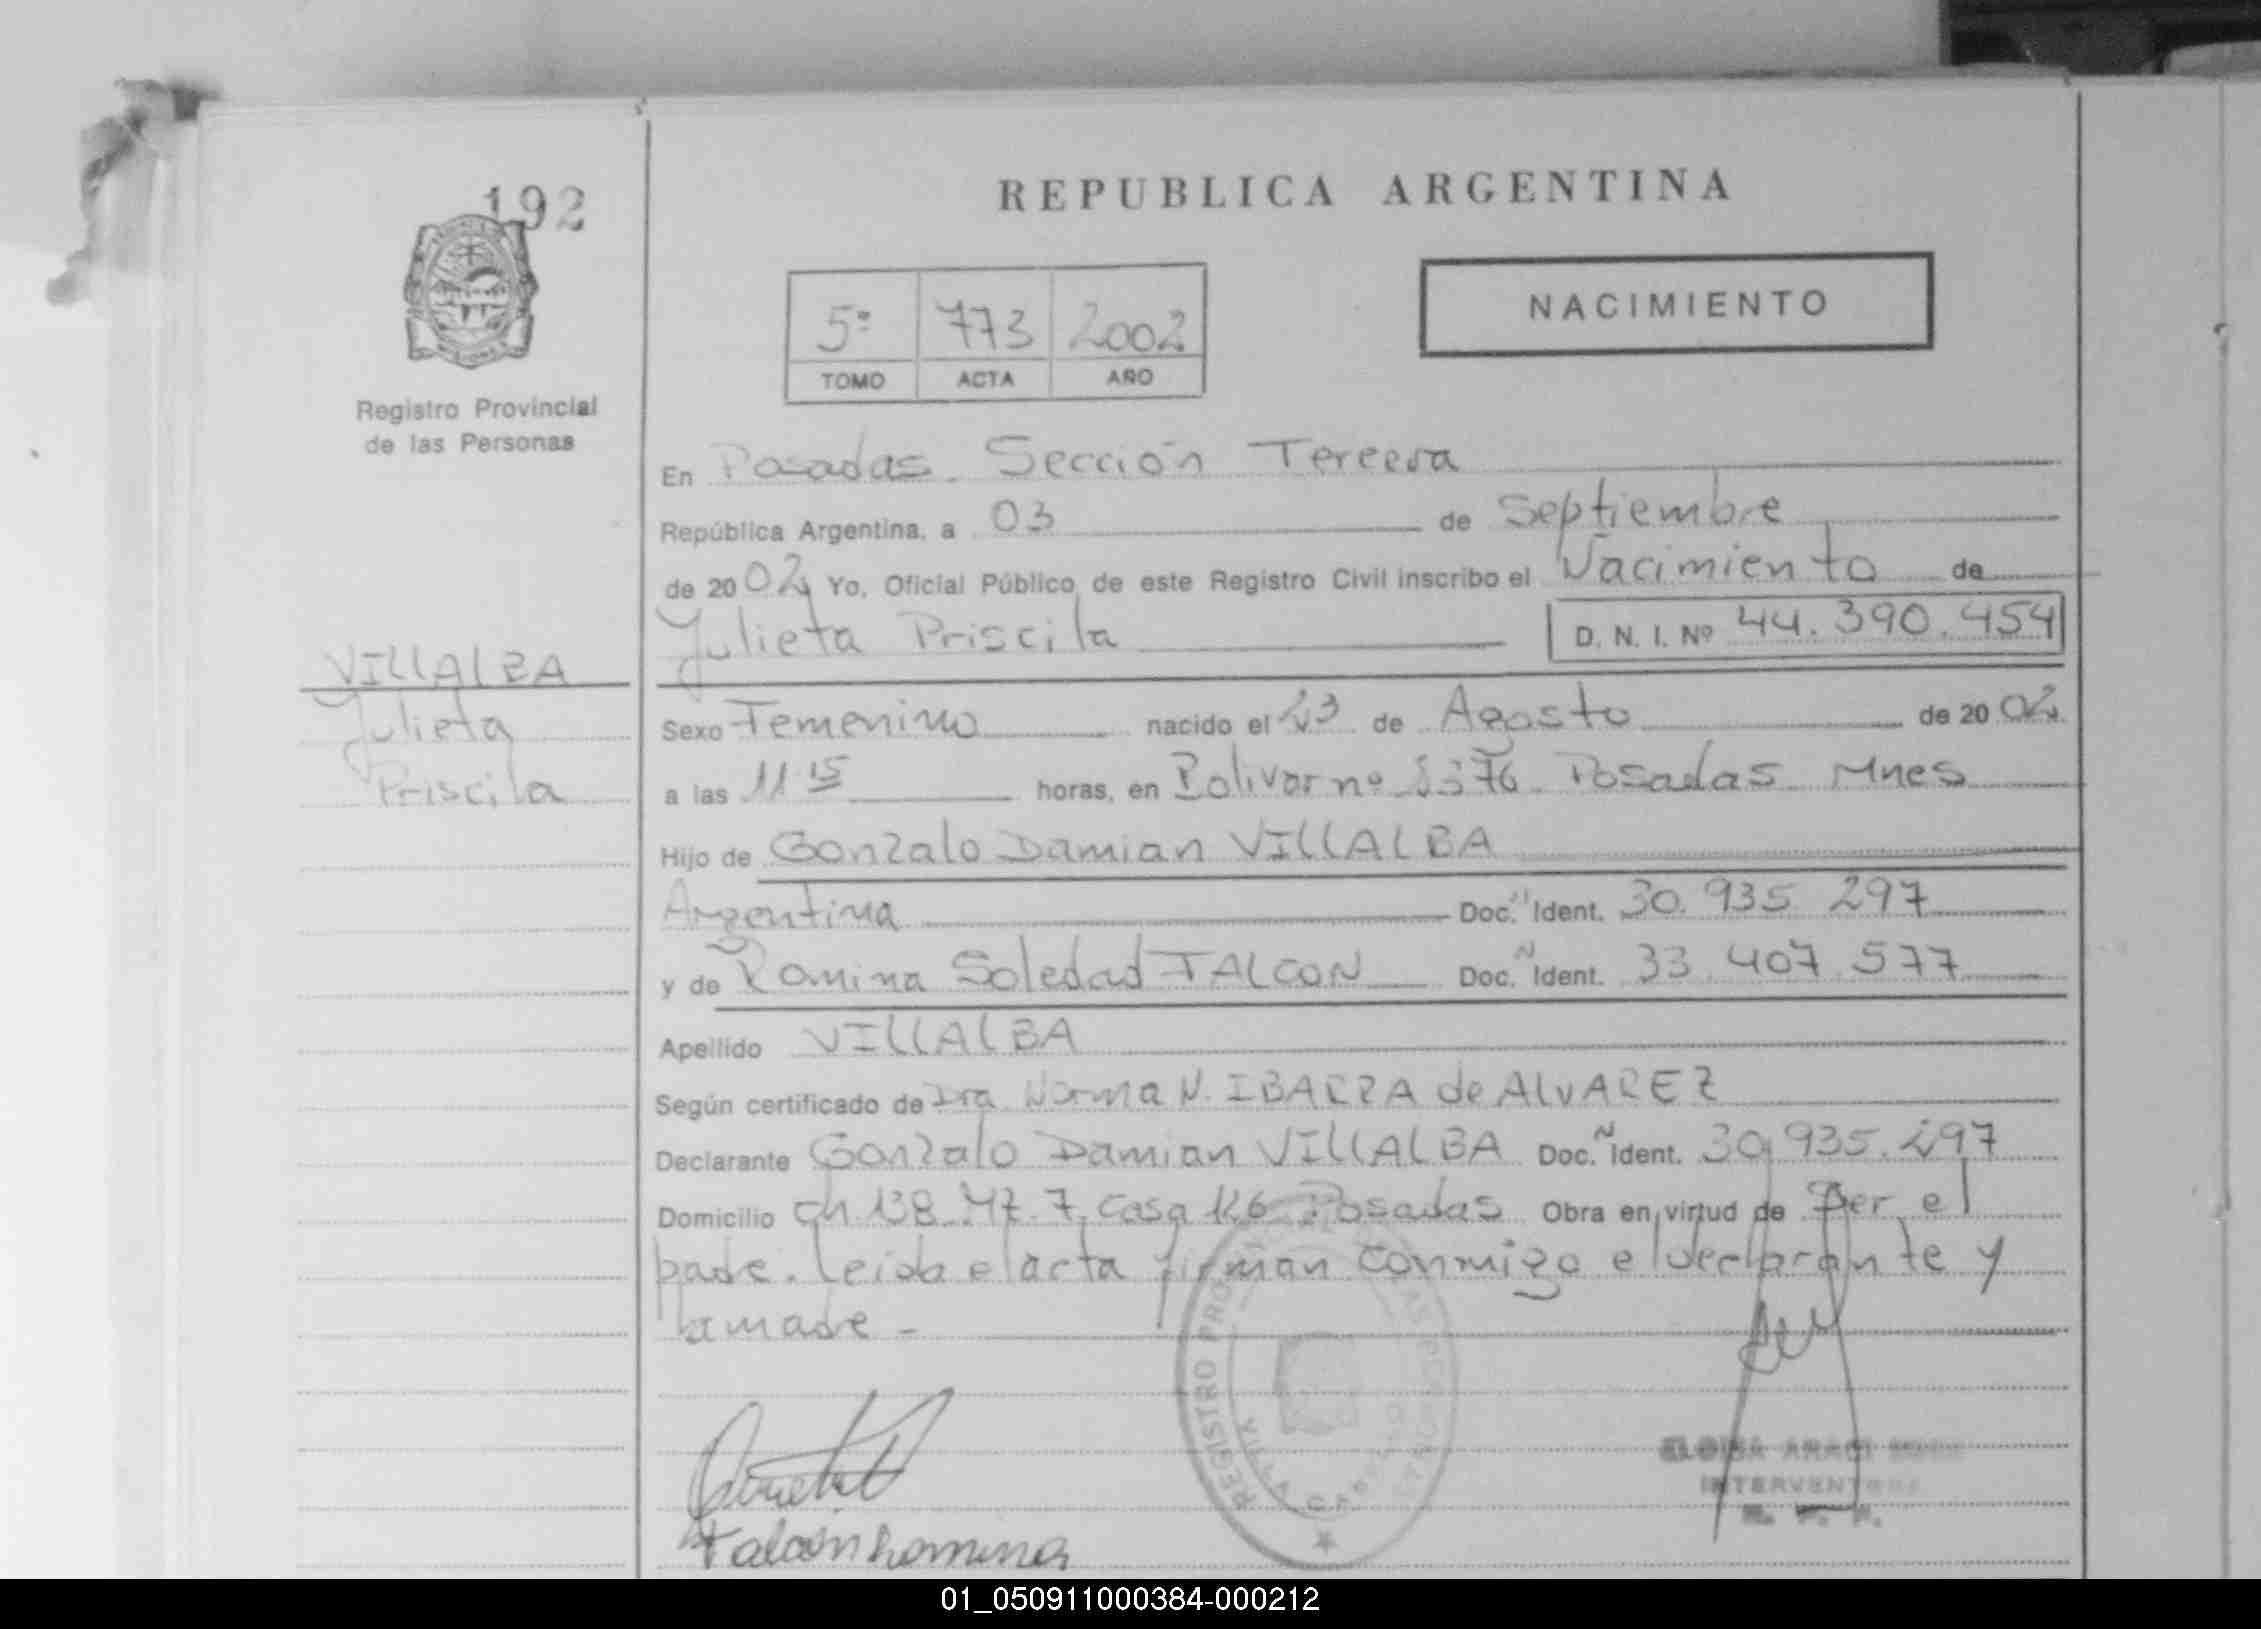 192
REPUBLICA ARGENTINA
NACIMIENTO
5º 773 2002
TOMO ACTA AÑO
Registro Provincial
de las Personas
En Posadas. Sección Tercera
República Argentina, a 03 de Septiembre
de 2002 Yo, Oficial Público de este Registro Civil inscribo el Nacimiento de
Julieta Priscila D. N. I. Nº 44.390.454
VILLALBA
Julieta
Priscila
Sexo Femenino nacido el 23 de Agosto de 2002.
a las 11 15 horas, en Bolivar nº 1376 Posadas Mnes
Hijo de Gonzalo Damian VILLALBA
Argentina Doc. Ident. 30.935.297
y de Romina Soledad FALCON Doc. Ident. 33.407.577
Apellido VILLALBA
Según certificado de Dra Norma N. IBARRA de ALVAREZ
Declarante Gonzalo Damian VILLALBA Doc. Ident. 30.935.297
Domicilio ch 138 Mz 7 casa 126 Posadas Obra en virtud de Ser el
padre. Leida el acta firman conmigo el declarante y
la madre -
REGISTRO
Falcon Romina
INTERVENTORA
01_050911000384-000212